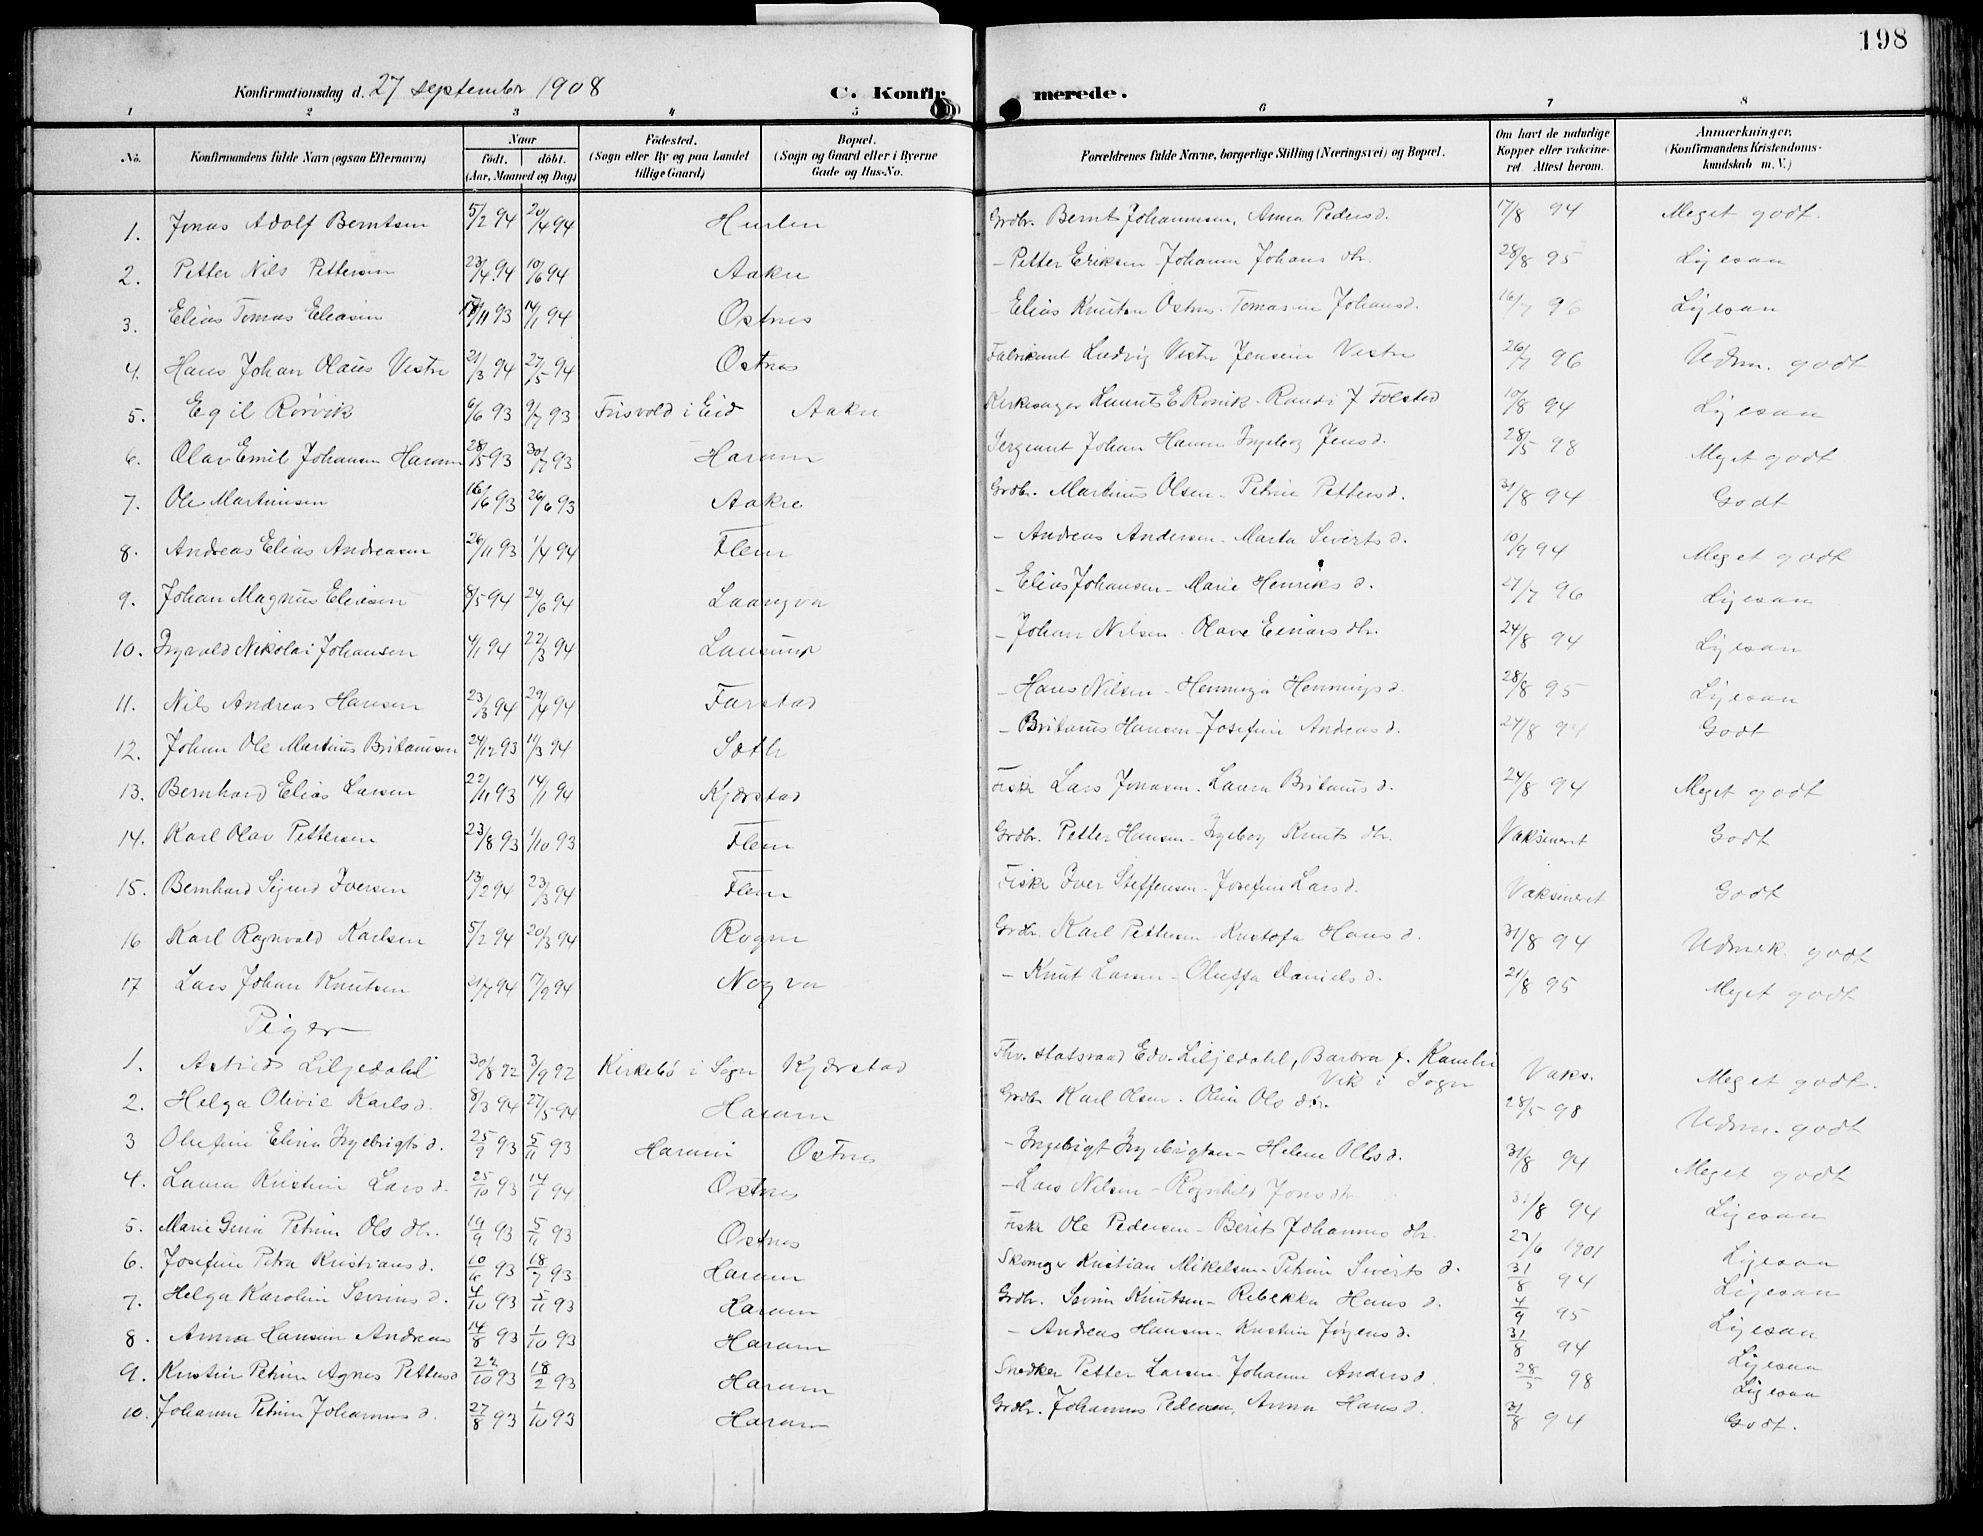 198
Konfirmationsdag d. 27 september 1908 C. Konfirmerede.
1 2 3 4 5 6 7 8
No. Konfirmandens fulde Navn (ogsaa Efternavn) Naar født. døbt. (Aar, Maaned og Dag) Fødested. (Sogn eller By og paa Landet tillige Gaard) Bopæl. (Sogn og Gaard eller i Byerne Gade og Hus-No. Forældrenes fulde Navne, borgerlige Stilling (Næringsvei) og Bopæl. Om havt de naturlige Kopper eller vakcineret. Attest herom. Anmærkninger. (Konfirmandens Kristendomskundskab m. V.)
1. Jonas Adolf Berntsen 5/2 94 20/4 94 Hurlen Grdbr. Bernt Johannesen, Anna Pedersd. 17/8 94 Meget godt.
2. Petter Nils Pettersen 23/4 94 10/6 94 Aakre - Petter Eriksen Johanne Johans dtr. 28/8 95 Ligesaa
3. Elias Tomas Eliasen 93 14/1 94 Ostnes - Elias Knutsen Ostnes. Tomasine Johansd. 16/7 96 Ligesaa
4. Hans Johan Olaus Vestre 21/3 94 27/5 94 Ostnes Fabrikant Ludvig Vestre Jensine Vestre 26/7 96 Udm. godt
5. Egil Rörvik 6/6 93 9/7 93 Frisvold i Eid Aakre Kirkesanger Laurits E Rörvik - Randi J Tolstad 10/8 94 Ligesaa
6. Olav Emil Johansen Haram 28/5 93 30/7 93 Haram Sergeant Johan Haram Ingeborg Jensd. 28/5 98 Meget godt
7. Ole Martinusen 16/6 93 26/6 93 Aakre Grdbr. Martinus Olsen - Petrine Pettersd. 31/8 94 Godt
8. Andreas Elias Andreasen 26/11 93 1/4 94 Flem - Andreas Andersen - Marta Siverts d. 10/9 94 Meget godt
9. Johan Magnus Eliasen 8/5 94 24/6 94 Laangva - Elias Johansen - Marie Henriks d. 27/7 96 Ligesaa
10. Ingvald Nikolai Johansen 4/1 94 22/3 94 Lausund - Johan Nilsen - Olave Einars dtr. 24/8 94 Ligesaa
11. Nils Andreas Hansen 23/3 94 29/4 94 Farstad - Hans Nilsen - Henninga Hennings d. 28/8 95 Ligesaa
12. Johan Ole Martinus Britanusen 24/12 93 11/3 94 Sæth - Britanus Hansen - Josefine Andreas d. 24/8 94 Godt
13. Bernhard Elias Larsen 22/11 93 14/1 94 Kjærstad Fisker Lars Jonasen. Laura Britanus d. 24/8 94 Meget godt
14. Karl Olav Pettersen 23/8 93 1/10 93 Flem Grdbr. Petter Hansen - Ingeborg Knuts dtr. Vaksineret Godt
15. Bernhard Sigurd Iversen 13/2 94 23/3 94 Flem Fisker Iver Steffensen - Josefine Larsd. Vaksineret Godt
16 Karl Ragnvald Karlsen 5/2 94 20/3 94 Rogne Grdbr. Karl Pettersen - Kristofa Hans d. 31/8 94 Udmerk. godt
17 Lars Johan Knutsen 21/4 94 17/9 94 Nogva - Knut Larsen - Oluffa Daniels d. 21/8 95 Meget godt
Piger
1. Astrid Liljedahl 30/8 92 3/9 92 Kirkebö i Sogn Kjærstad Fhv. statsraad Edv. Liljedahl, Barbra f. Vik i Sogn Vaks. Meget godt.
2. Helga Olivie Karls d. 8/3 94 27/5 94 Haram Grdbr Karl Olsen. Oline Ols dtr. 28/5 98 Udm. godt
3 Olufine Elina Ingebrigts d. 25/9 93 5/11 93 Haram Ostnes - Ingebrigt Ingebrigtsen - Helene Olles d. 31/8 94 Meget godt
4. Laura Kristine Lars d. 25/10 93 14/1 94 Ostnes - Lars Nilsen - Ragnhild Jons dtr 31/8 94 Ligesaa
5. Marie Gina Petrine Ols dtr. 19/9 93 5/11 93 Ostnes Fisker Ole Pedersen - Berit Johannes dtr. 27/6 1901 Ligesaa
6. Josefine Petra Kristians d. 10/6 93 18/7 93 Haram Skomager Kristian Mikelsen - Petrine Siverts d. 31/8 94 Ligesaa
7. Helga Karoline Severins d. 4/10 93 5/11 93 Haram Grdbr. Severin Knutsen - Rebekka Hans d. 4/9 95 Ligesaa
8. Anna Hansine Andreas 14/8 93 1/10 93 Haram - Andreas Hansen - Kristine Jörgens d. 31/8 94 Ligesaa
9. Kristine Petrine Agnes Pettersd 22/10 93 18/2 93 Haram Snedker Petter Larsen - Johanne Anders d. 28/5 98 Ligesaa
10. Johanne Petrine Johannes d. 27/8 93 1/10 93 Haram Grdbr. Johannes Pedersen, Anna Hans d. 31/8 94 Godt.